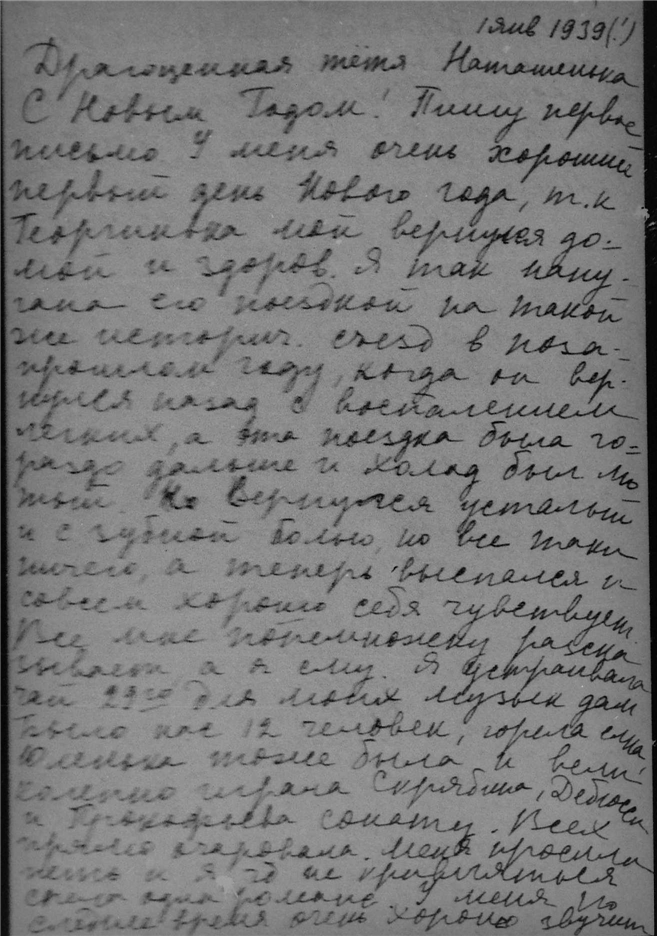 1 янв 1939(!)
Драгоценная тётя Наташенька
С Новым Годом! Пишу первое
письмо У меня очень хороший
первый день Нового года, т.к
Георгинька мой вернулся до=
мой и здоров. Я так напу-
гана его поездкой на такой
же историч. съезд в поза-
прошлом году, когда он вер-
нулся назад с воспалением
легких, а эта поездка была го=
раздо дальше и холод был лю
тый. Но вернулся усталый
и с зубной болью, но все таки
ничего, а теперь выспался и
совсем хорошо себя чувствует.
Все мне понемножку расска
зывает, а я ему. Я устраивала
чай 29го для моих музык дам
Было нас 12 человек, горела елка,
Юленька тоже была и вели
колепно играла Скрябина, Дебюсси
и Прокофьева сонату. Всех
прямо очаровала. Меня просили
петь и я
спела одна романс. У меня
следнее время очень хорошо звучит